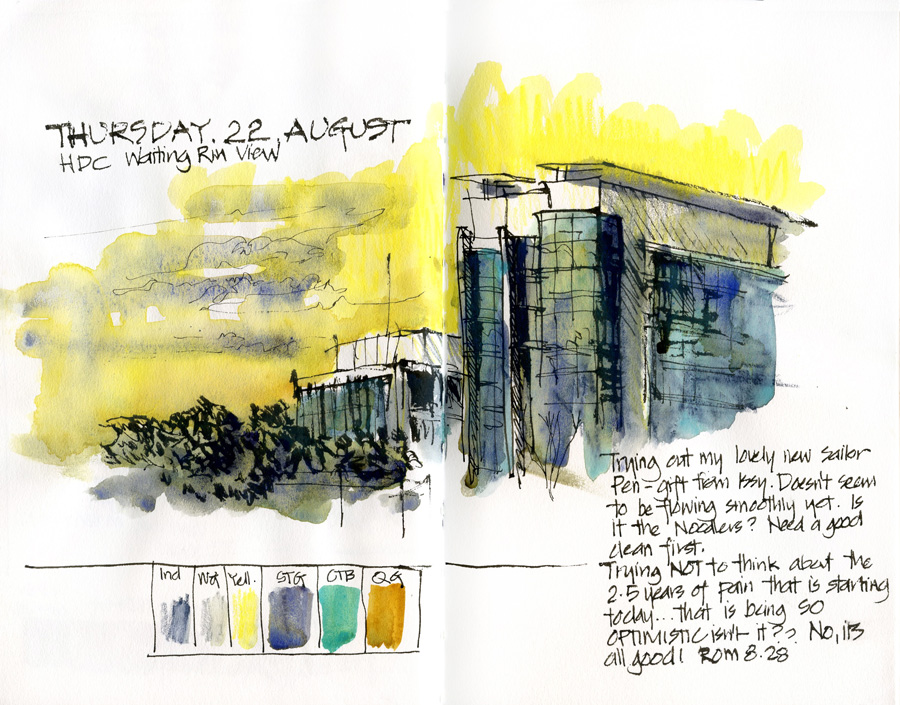 THURSDAY. 22, AUGUST
HDC Waiting Rm View
Ind Yell. CTB QG
Trying out my lovely new Sailor
Pen - gift from Issy. Doesn't seem
to be flowing smoothly yet. Is
it the Noodlers? Need a good
clean first.
Trying NOT to think about the
2.5 years of pain that is starting
today... that is being SO
OPTIMISTIC isn't it?? No, it's
all good! Rom 8.28